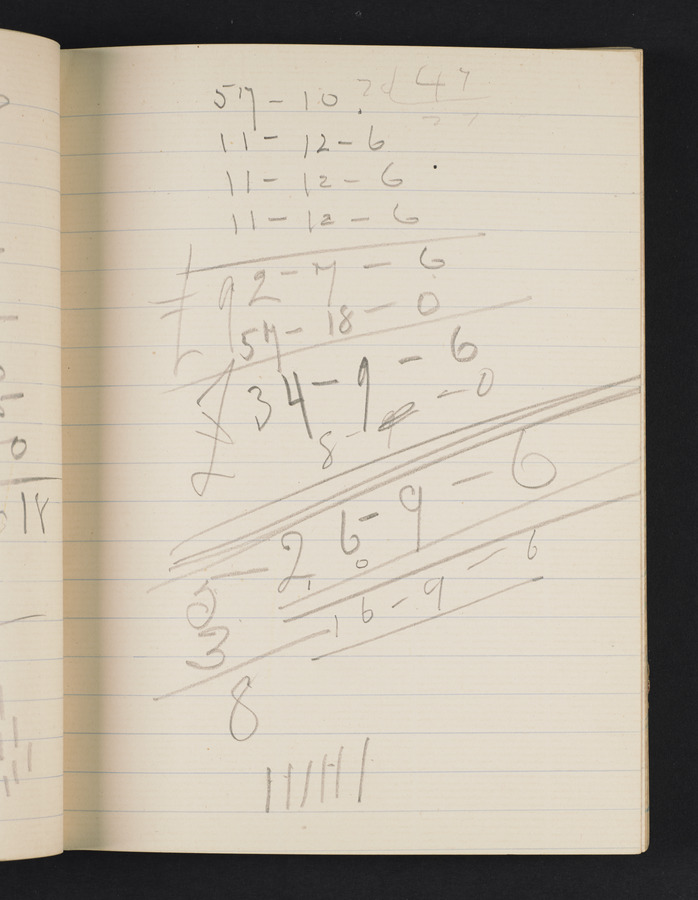 57-10
11-12-6
11-12-6
11-12-6
£92-7-6
57-18-0
£34-9-6
8- -0
26-9-6
5
10
16-9-6
3
8